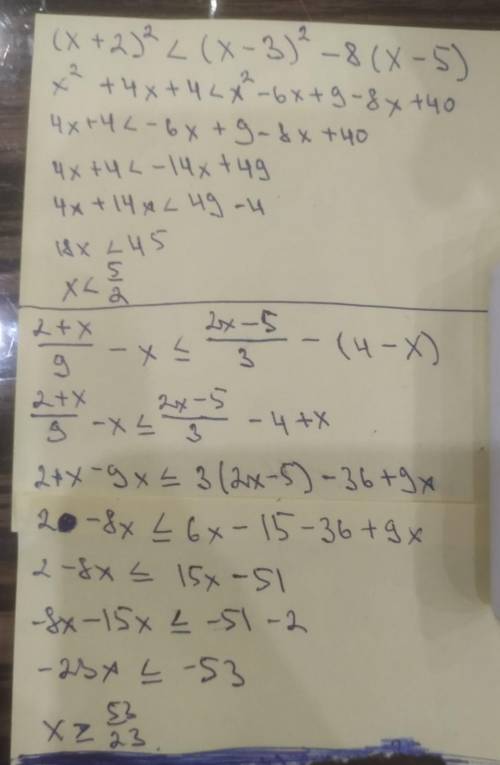 (x+2)² < (x-3)² - 8(x-5)
x² + 4x + 4 < x² - 6x + 9 - 8x + 40
4x + 4 < -6x + 9 - 8x + 40
4x + 4 < -14x + 49
4x + 14x < 49 - 4
18x < 45
x < 5/2
(2+x)/9 - x ≤ (2x-5)/3 - (4-x)
(2+x)/9 - x ≤ (2x-5)/3 - 4 + x
2+x - 9x ≤ 3(2x-5) - 36 + 9x
2 - 8x ≤ 6x - 15 - 36 + 9x
2 - 8x ≤ 15x - 51
-8x - 15x ≤ -51 - 2
-23x ≤ -53
x ≥ 53/23.